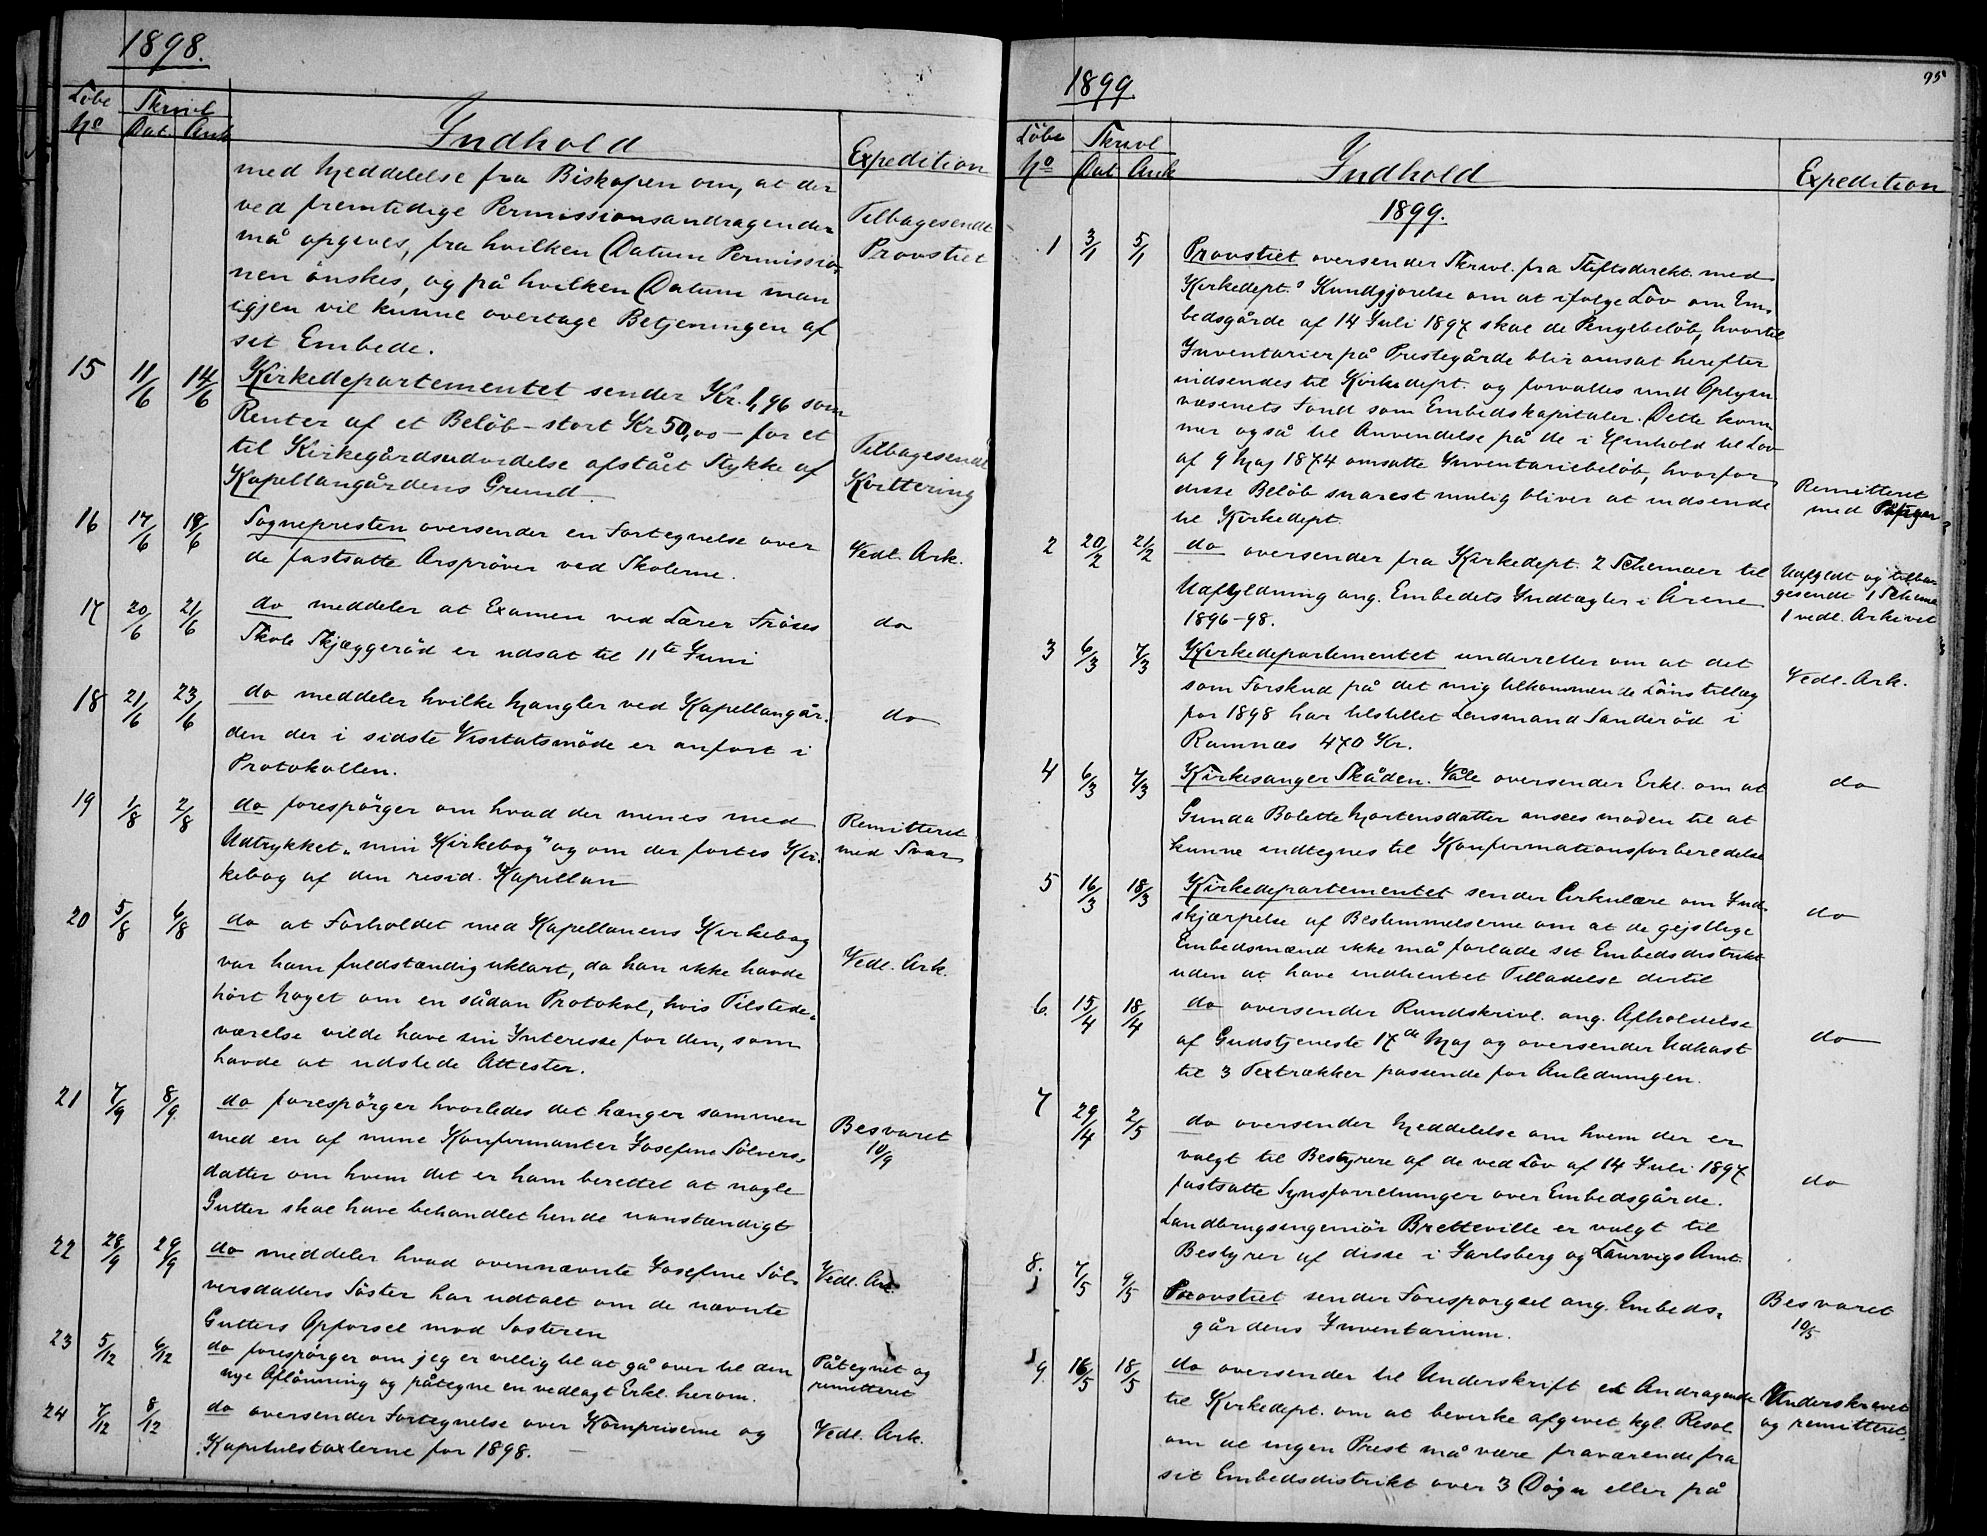 1898.
Löbe No Skrivl Dat. Ank Indhold Expedition
med Meddelelse fra Biskopen om, at der
ved fremtidige Permissionsandragender Tilbagesendt
må opgives, fra hvilken Datum Permissio- Provstiet
nen önskes, og på hvilken Datum man
igjen vil kunne overtage Betjeningen af
sit Embede.
15 11/6 14/6 Kirkedepartementet sender Kr. 1,96 som
Renter af et Beløb - stort Kr 50,00 - for et
til Kirkegårdsudvidelse afstået Stykke af Tilbagesendt
Kapellangårdens Grund. Kvittering
16 17/6 18/6 Sognepresten oversender en Fortegnelse over
de fastsatte Arsprøver ved Skolerne. Vedl. Ark.
17 20/6 21/6 do meddeler at Examen ved Lærer Fröses do
Skole Skjæggeröd er udsat til 11te Juni
18 21/6 23/6 do meddeler hvilke Mangler ved Kapellangår- do
den der i sidste Visitatsmöde er anfört i
Protokollen.
19 1/8 2/8 do forespörger om hvad der menes med Remitteret
Udtrykket "min Kirkebog" og om der fortes Kir- med Svar
kebog af den resid. Kapellan
20 5/8 6/8 do at Forholdet med Kapellanens Kirkebog
var ham fuldstændig uklart, da han ikke havde Vedl. Ark.
hört noget om en sådan Protokol, hvis Tilstede-
værelse vilde have sin Interesse for den, som
havde at udstede Attester.
21 7/9 8/9 do forespörger hvorledes det hænger sammen Besvaret
med en af mine Konfirmanter Josefine Sölvers- 10/9
datter om hvem det er ham berettet at nogle
Gutter skal have behandlet hende uanstændigt
22 28/9 29/9 do meddeler hvad ovennævnte Josefine Söl- Vedl. Ark.
versdatters Söster har udtalt om de nævnte
Gutters Opförsel mod Sösteren
23 5/12 6/12 do forespörger om jeg er villig til at gå over til den Påtegnet og
nye Aflönning og påtegne en vedlagt Erkl. herom. remitteret
24 7/12 8/12 do oversender Fortegnelse over Kornpriserne og Vedl. Ark.
Kapitulstaxterne for 1898.
95
1899
Löbe No Skrivl Dat Ank Indhold Expedition
1899.
1 3/1 5/1 Provstiet oversender Skrivl. fra Stiftsdirekt. med
Kirkedept.s Kundgjørelse om at ifølge Lov om Em-
bedsgårde af 14 Juli 1897 skal de Pengebeløb, hvortil
Inventarier på Prestegårde blir omsat herefter
indsendes til Kirkedept. og forvaltes und. Oplysn.
væsenets Fond som Embedskapitaler. Dette kom-
mer også til Anvendelse på de i Henhold til Lov
af 9 Maj 1874 omsatte Inventariebeløb, hvorfor
disse Beløb snarest mulig bliver at indsende Remitteret
til Kirkedept. med
2 20/2 21/2 do oversender fra Kirkedept. 2 Schemaer til Udfyldt og tilba-
Udfyldning ang. Embedets Indtægter i Årene gesendt 1 Schema
1896-98. 1 vedl. Arkivet
3 6/3 7/3 Kirkedepartementet underretter om at det
som Forskud på det mig tilkommende Lönstillæg Vedl. Ark.
for 1898 har tilstillet Lensmand Sanderöd i
Ramnæs 470 Kr.
4 6/3 7/3 Kirkesanger Skåden. Våle oversender Erkl. om at do
Gunda Bolette Mortensdatter ansees moden til at
kunne indtegnes til Konfirmationsforberedelse
5 16/3 18/3 Kirkedepartementet sender Cirkulære om Ind-
skjærpelse af Bestemmelserne om at de gejstlige do
Embedsmænd ikke må forlade sit Embedsdistrikt
uden at have indhentet Tilladelse dertil
6. 15/4 18/4 do oversender Rundskrivl. ang. Afholdelse
af Gudstjeneste 17de Maj og oversender Udkast do
til 3 Textrækker passende for Anledningen.
7 29/4 2/5 do oversender Meddelelse om hvem der er
valgt til Bestyrere af de ved Lov af 14 Juli 1897
fastsatte Synsforretninger over Embedsgårde. do
Landbrugsingeniör Bretteville er valgt til
Bestyrer af disse i Jarlsberg og Laurvigs Amt.
8. 7/5 9/5 Provstiet sender Forespørgsel ang. Embeds- Besvaret
gårdens Inventarium. 10/5
9. 16/5 18/5 do oversender til Underskrift et Andragende Underskrevet
til Kirkedept. om at bevirke afgivet kgl. Resol. og remitteret.
om at ingen Prest må være fraværende fra
sit Embedsdistrikt over 3 Døgn eller på